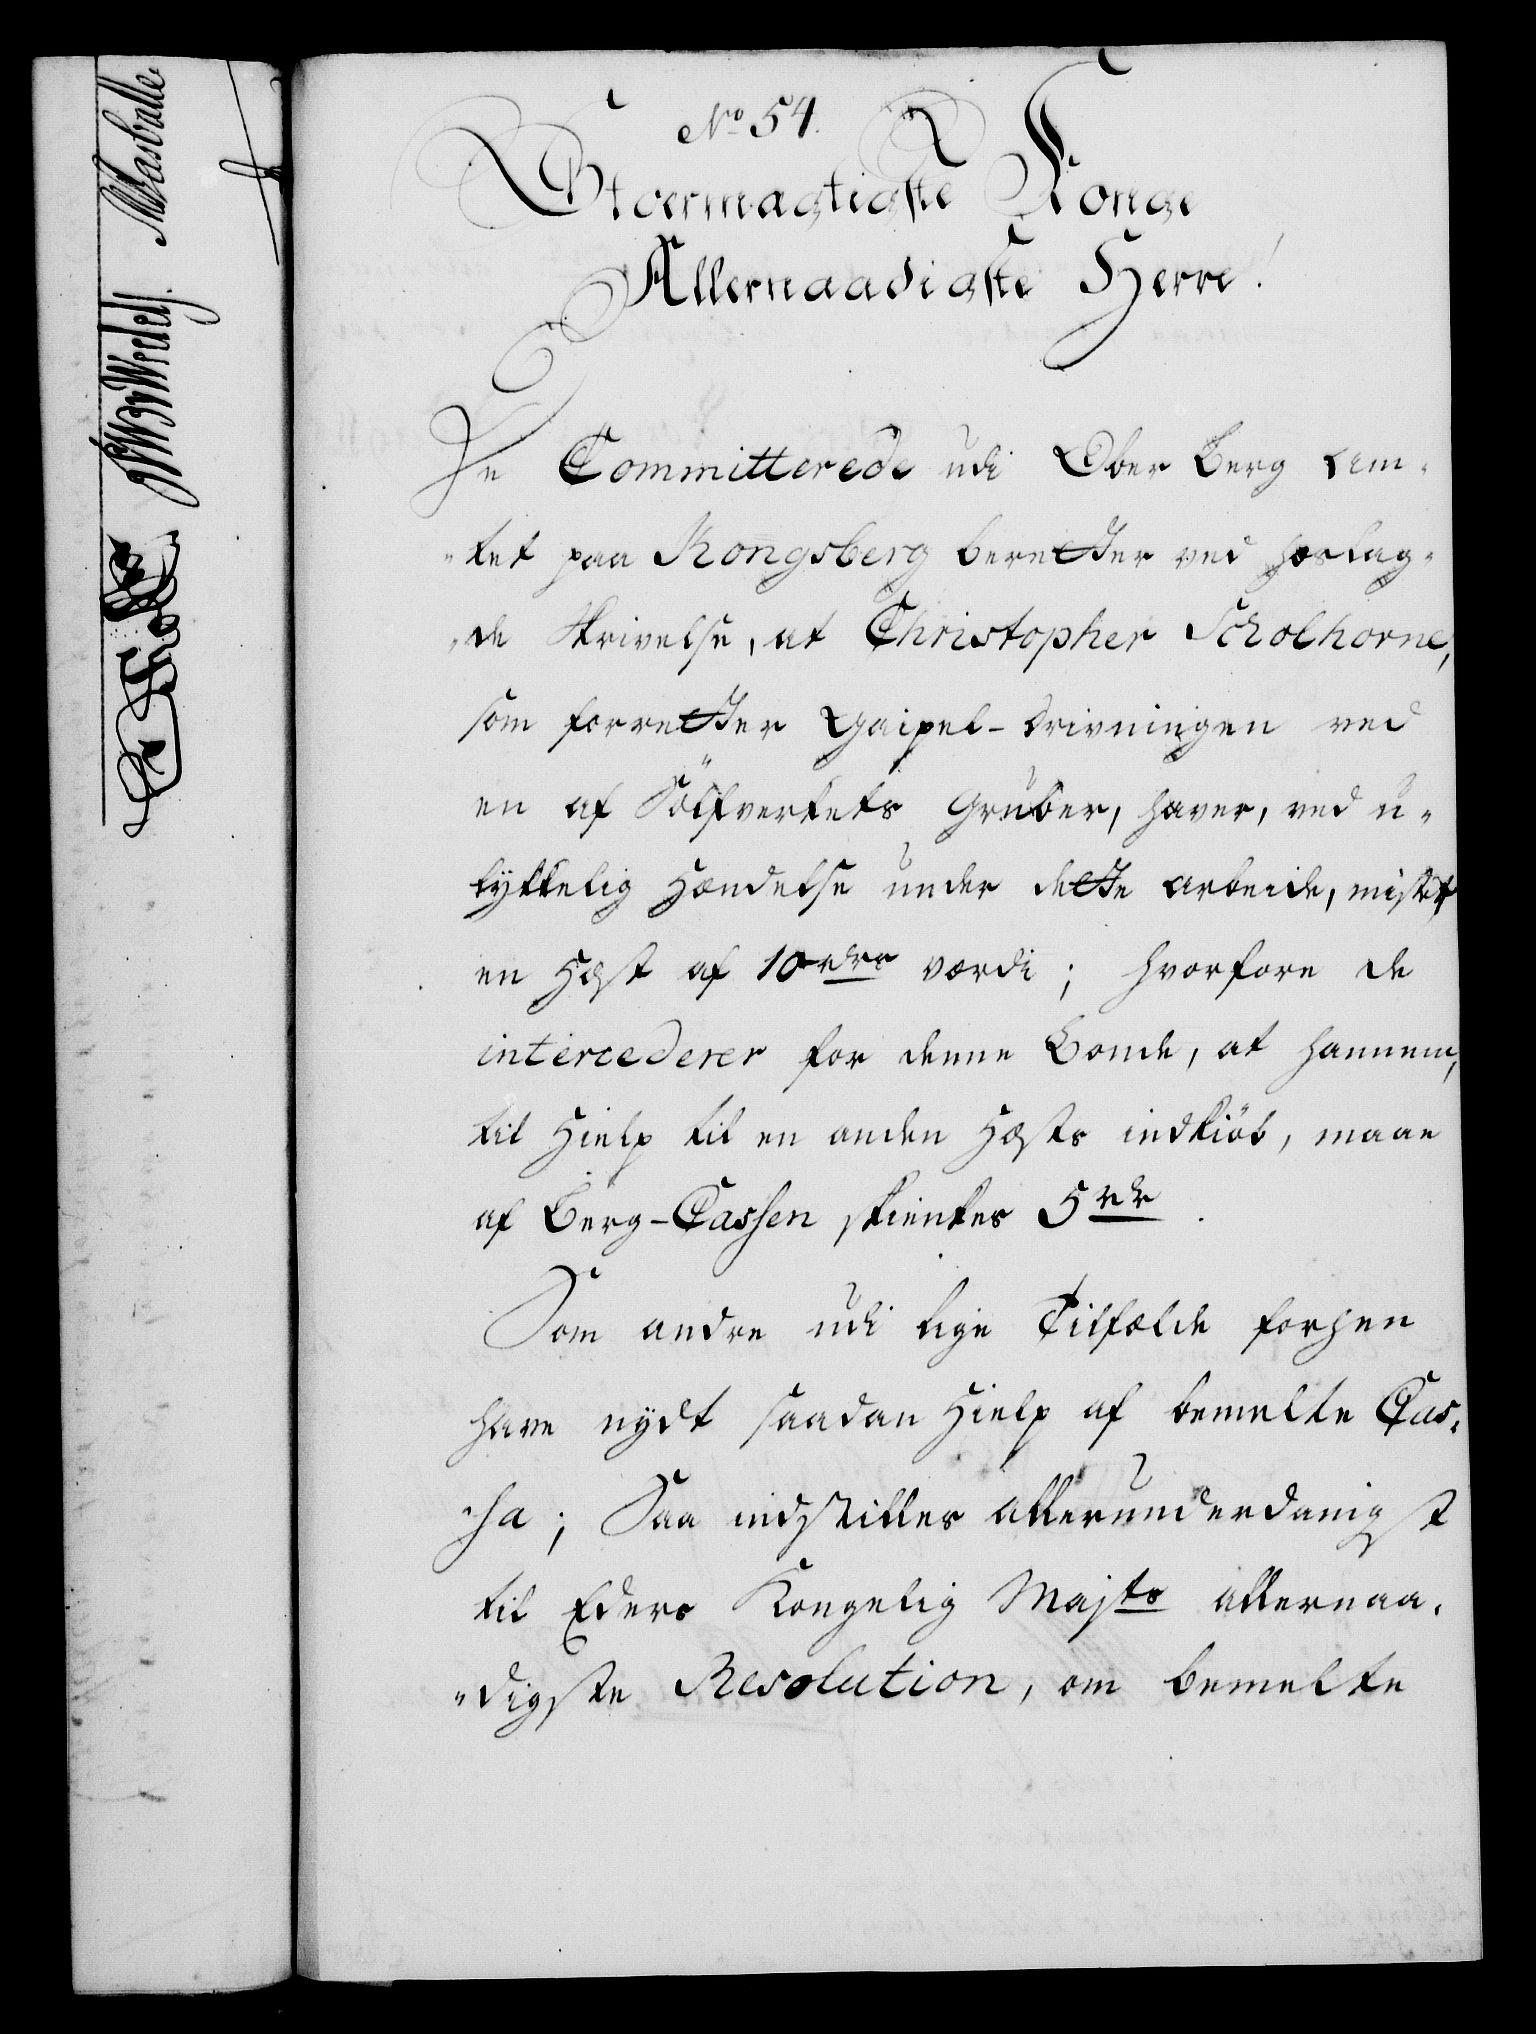 No 54.
Stoermagtigste Konge
Allernaadigste Herre!
De Committerede udi Ober Berg Am-
"tet paa Kongsberg beretter ved hoslag-
"de Skrivelse, at Christopher Scholhorne,
som forretter Gaipel-Drivningen ved
en af Sölfverkets Gruber, haver, ved u-
lykkelig Hændelse under dette arbeide, mistet
en Hæst af 10 rdrs værdi; hvorfore de
intercederer for denne Bonde, at hannem,
til Hielp til en anden Hæsts indkiöb, maae
af Berg-Cassen skienkes 5 rdr.
Som andre udi lige Tilfælde forhen
have nydt saadan Hielp af bemelte Cas-
"sa; Saa indstilles allerunderdanigst
til Eders Kongelig Majts allernaa-
"digste Resolution, om bemelte